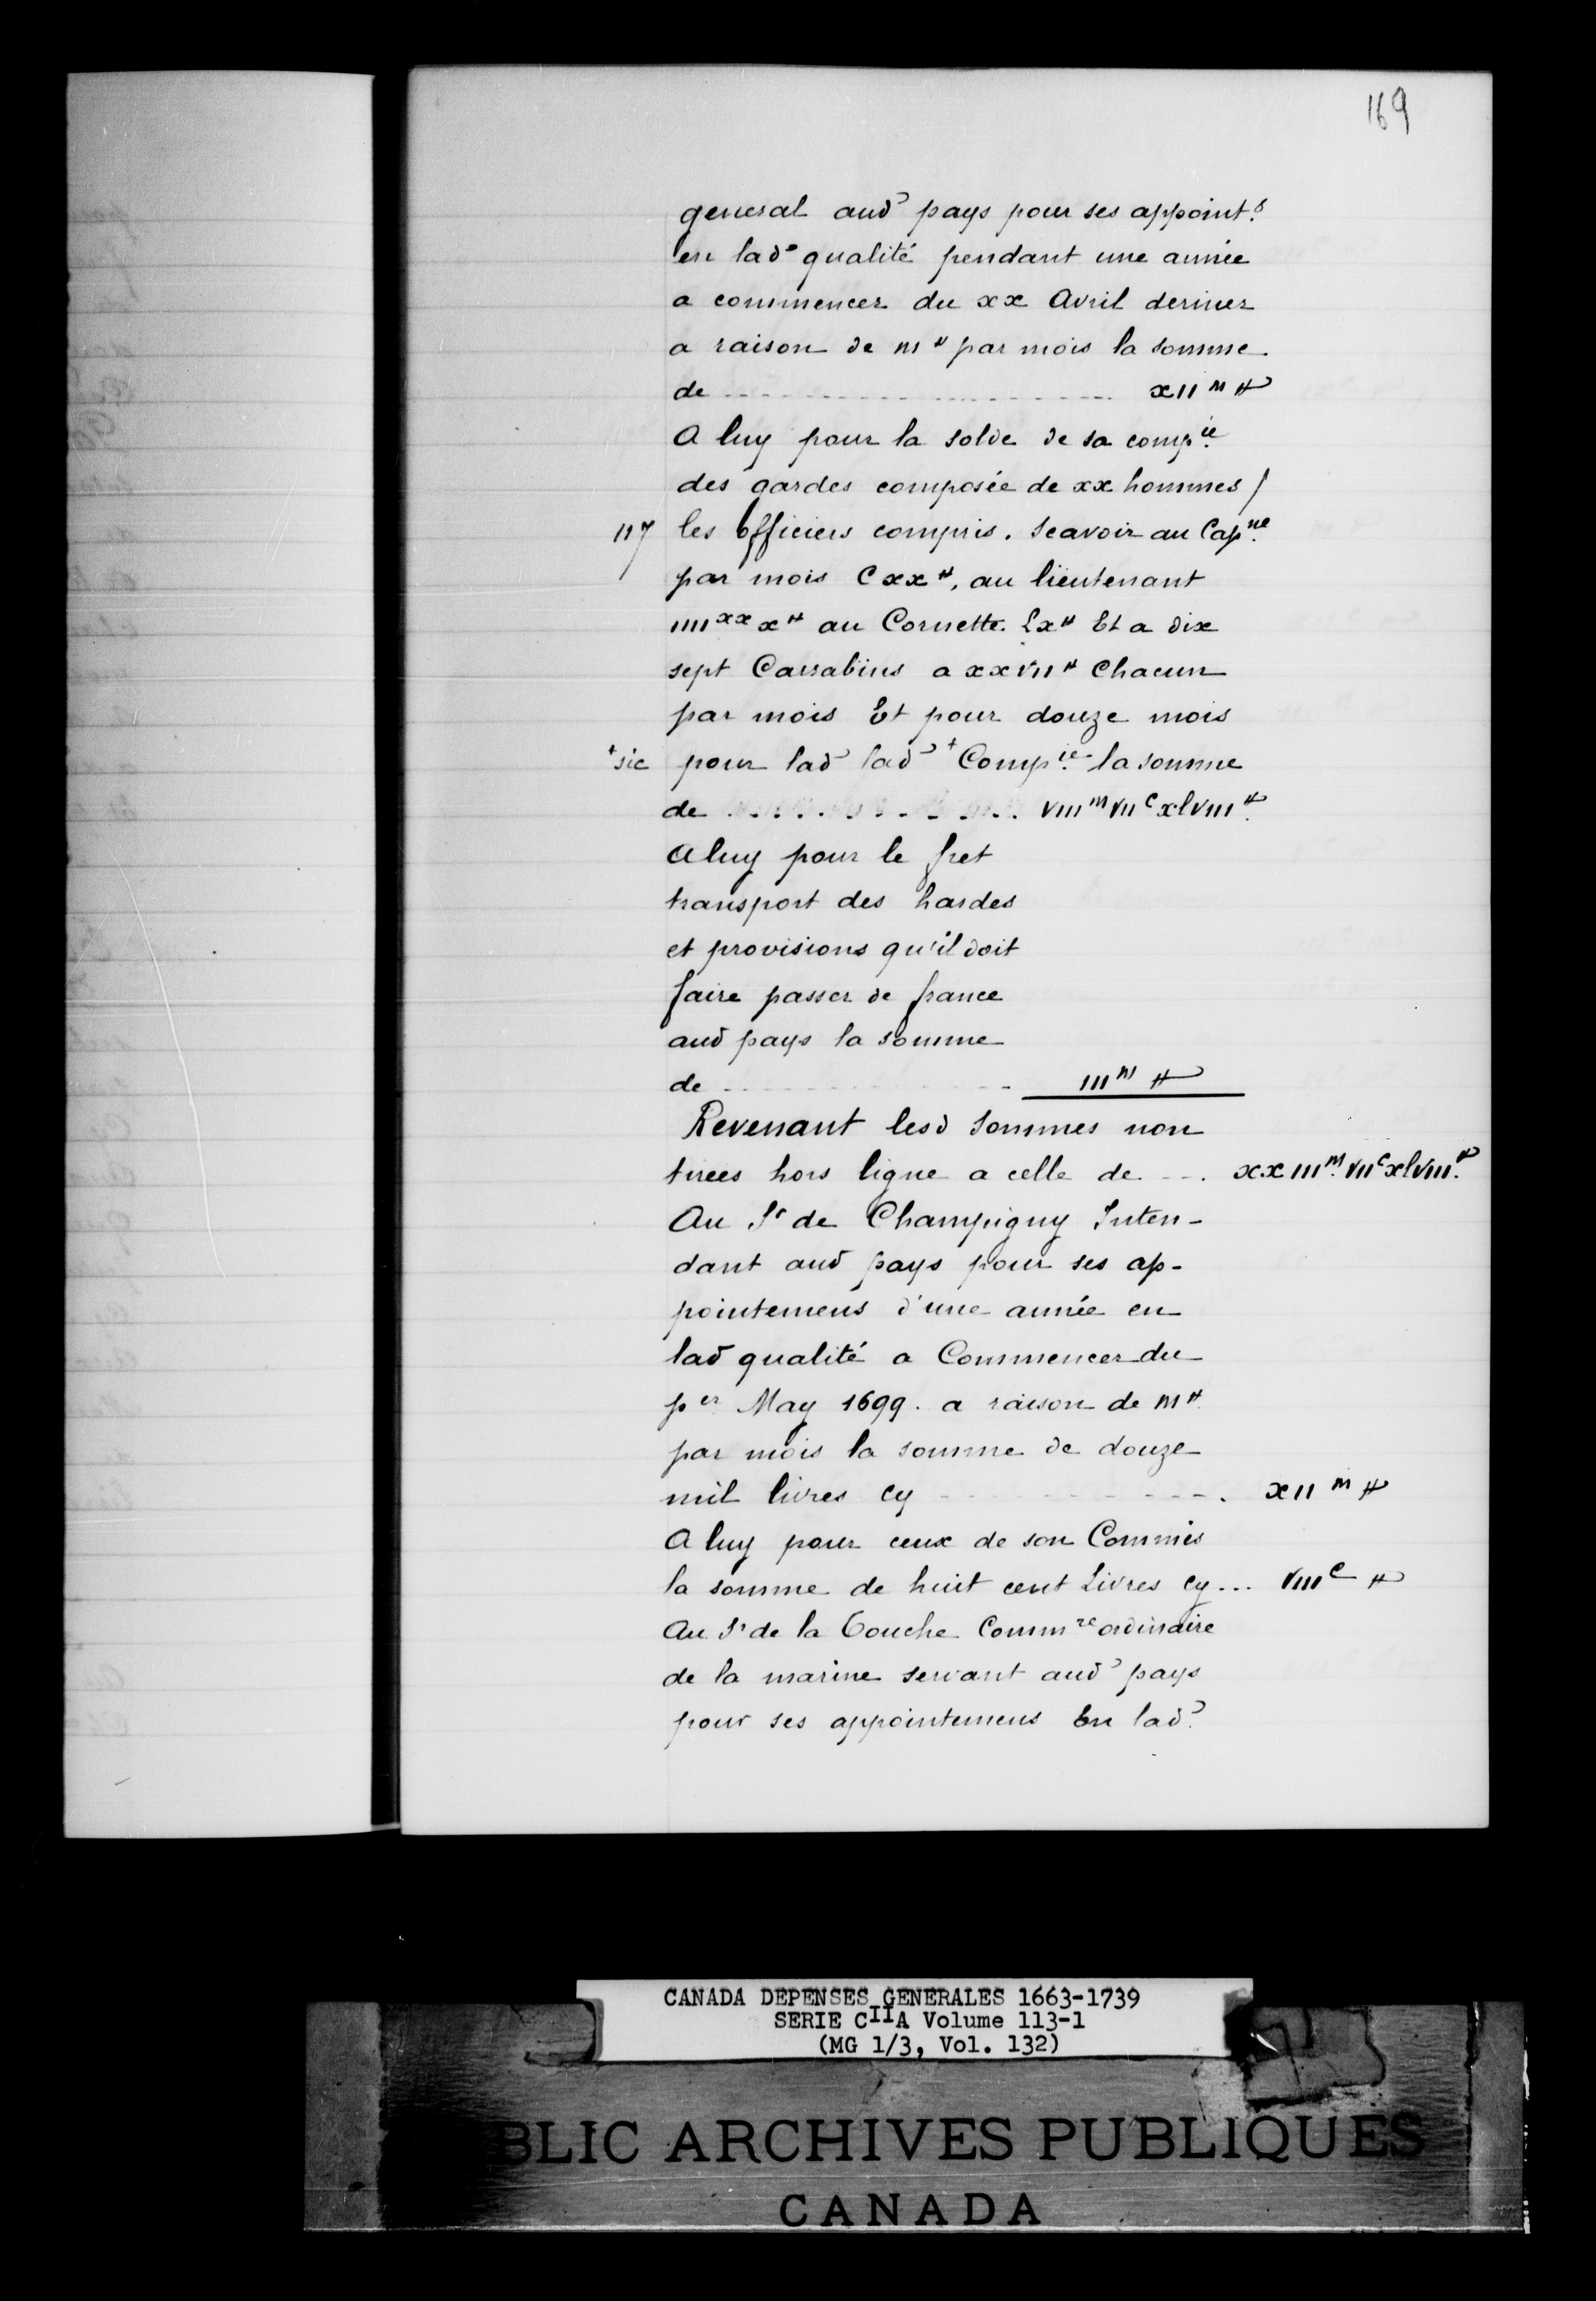 169
general aud pays pour ses appoints
en lad qualité pendant une année
a commencer du xx Avril dernier
a raison de m# par mois la somme
de ........ xIIm #
A luy pour la solde de sa compie
des gardes composée de xx hommes /
117 les officiers compris. Scavoir au Capne
par mois Cxx#, au lieutenant
IIIIxx x# au Cornette. Lx# Et a dix
sept Carrabins a xxvII# Chacun
par mois Et pour douze mois
+sic pour lad lad+ Compie la somme
de ........ vIIIm vIIc xlvIII#
A luy pour le fret
transport des hardes
et provisions qu'il doit
faire passer de france
aud pays la somme
de ........ IIIm #
Revenant lesd Sommes non
tirees hors ligne a celle de ... xxIIIm vIIc xlvIII#
Au Sr de Champigny Inten-
dant aud pays pour ses ap-
pointemens d'une année en
lad qualité a Commencer du
per May 1699. a raison de m#
par mois la somme de douze
mil livres cy ........ xIIm #
A luy pour ceux de son Commis
la somme de huit cent Livres cy... vIIIc #
Au Sr de la Touche Commre ordinaire
de la marine servant aud pays
pour ses appointemens En lad
CANADA DEPENSES GENERALES 1663-1739
SERIE CIIA Volume 113-1
(MG 1/3, Vol. 132)
BLIC ARCHIVES PUBLIQUES
CANADA